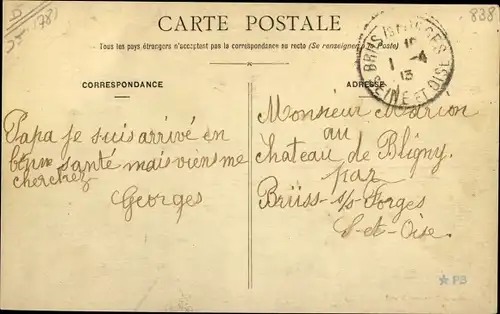 838
(78)
CARTE POSTALE
Tous les pays étrangers n'acceptent pas la correspondance au recto (Se renseigner à la Poste)
CORRESPONDANCE
Papa je suis arrivé en
bonne santé mais viens me
cherchez
Georges
ADRESSE
BRIIS S FORGES
1 -4
13
SEINE ET OISE
Monsieur Marion
au
Chateau de Bligny.
par
Brüss-s/s-Forges
S-et-Oise.
PB